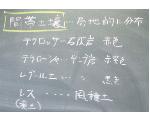 間帯土壌…局地的に分布
テラロッサ…石灰岩 赤色
テラローシャ…ケンガン 赤紫色
レグール土…〃 黒色
レス……風積土
(黄土)